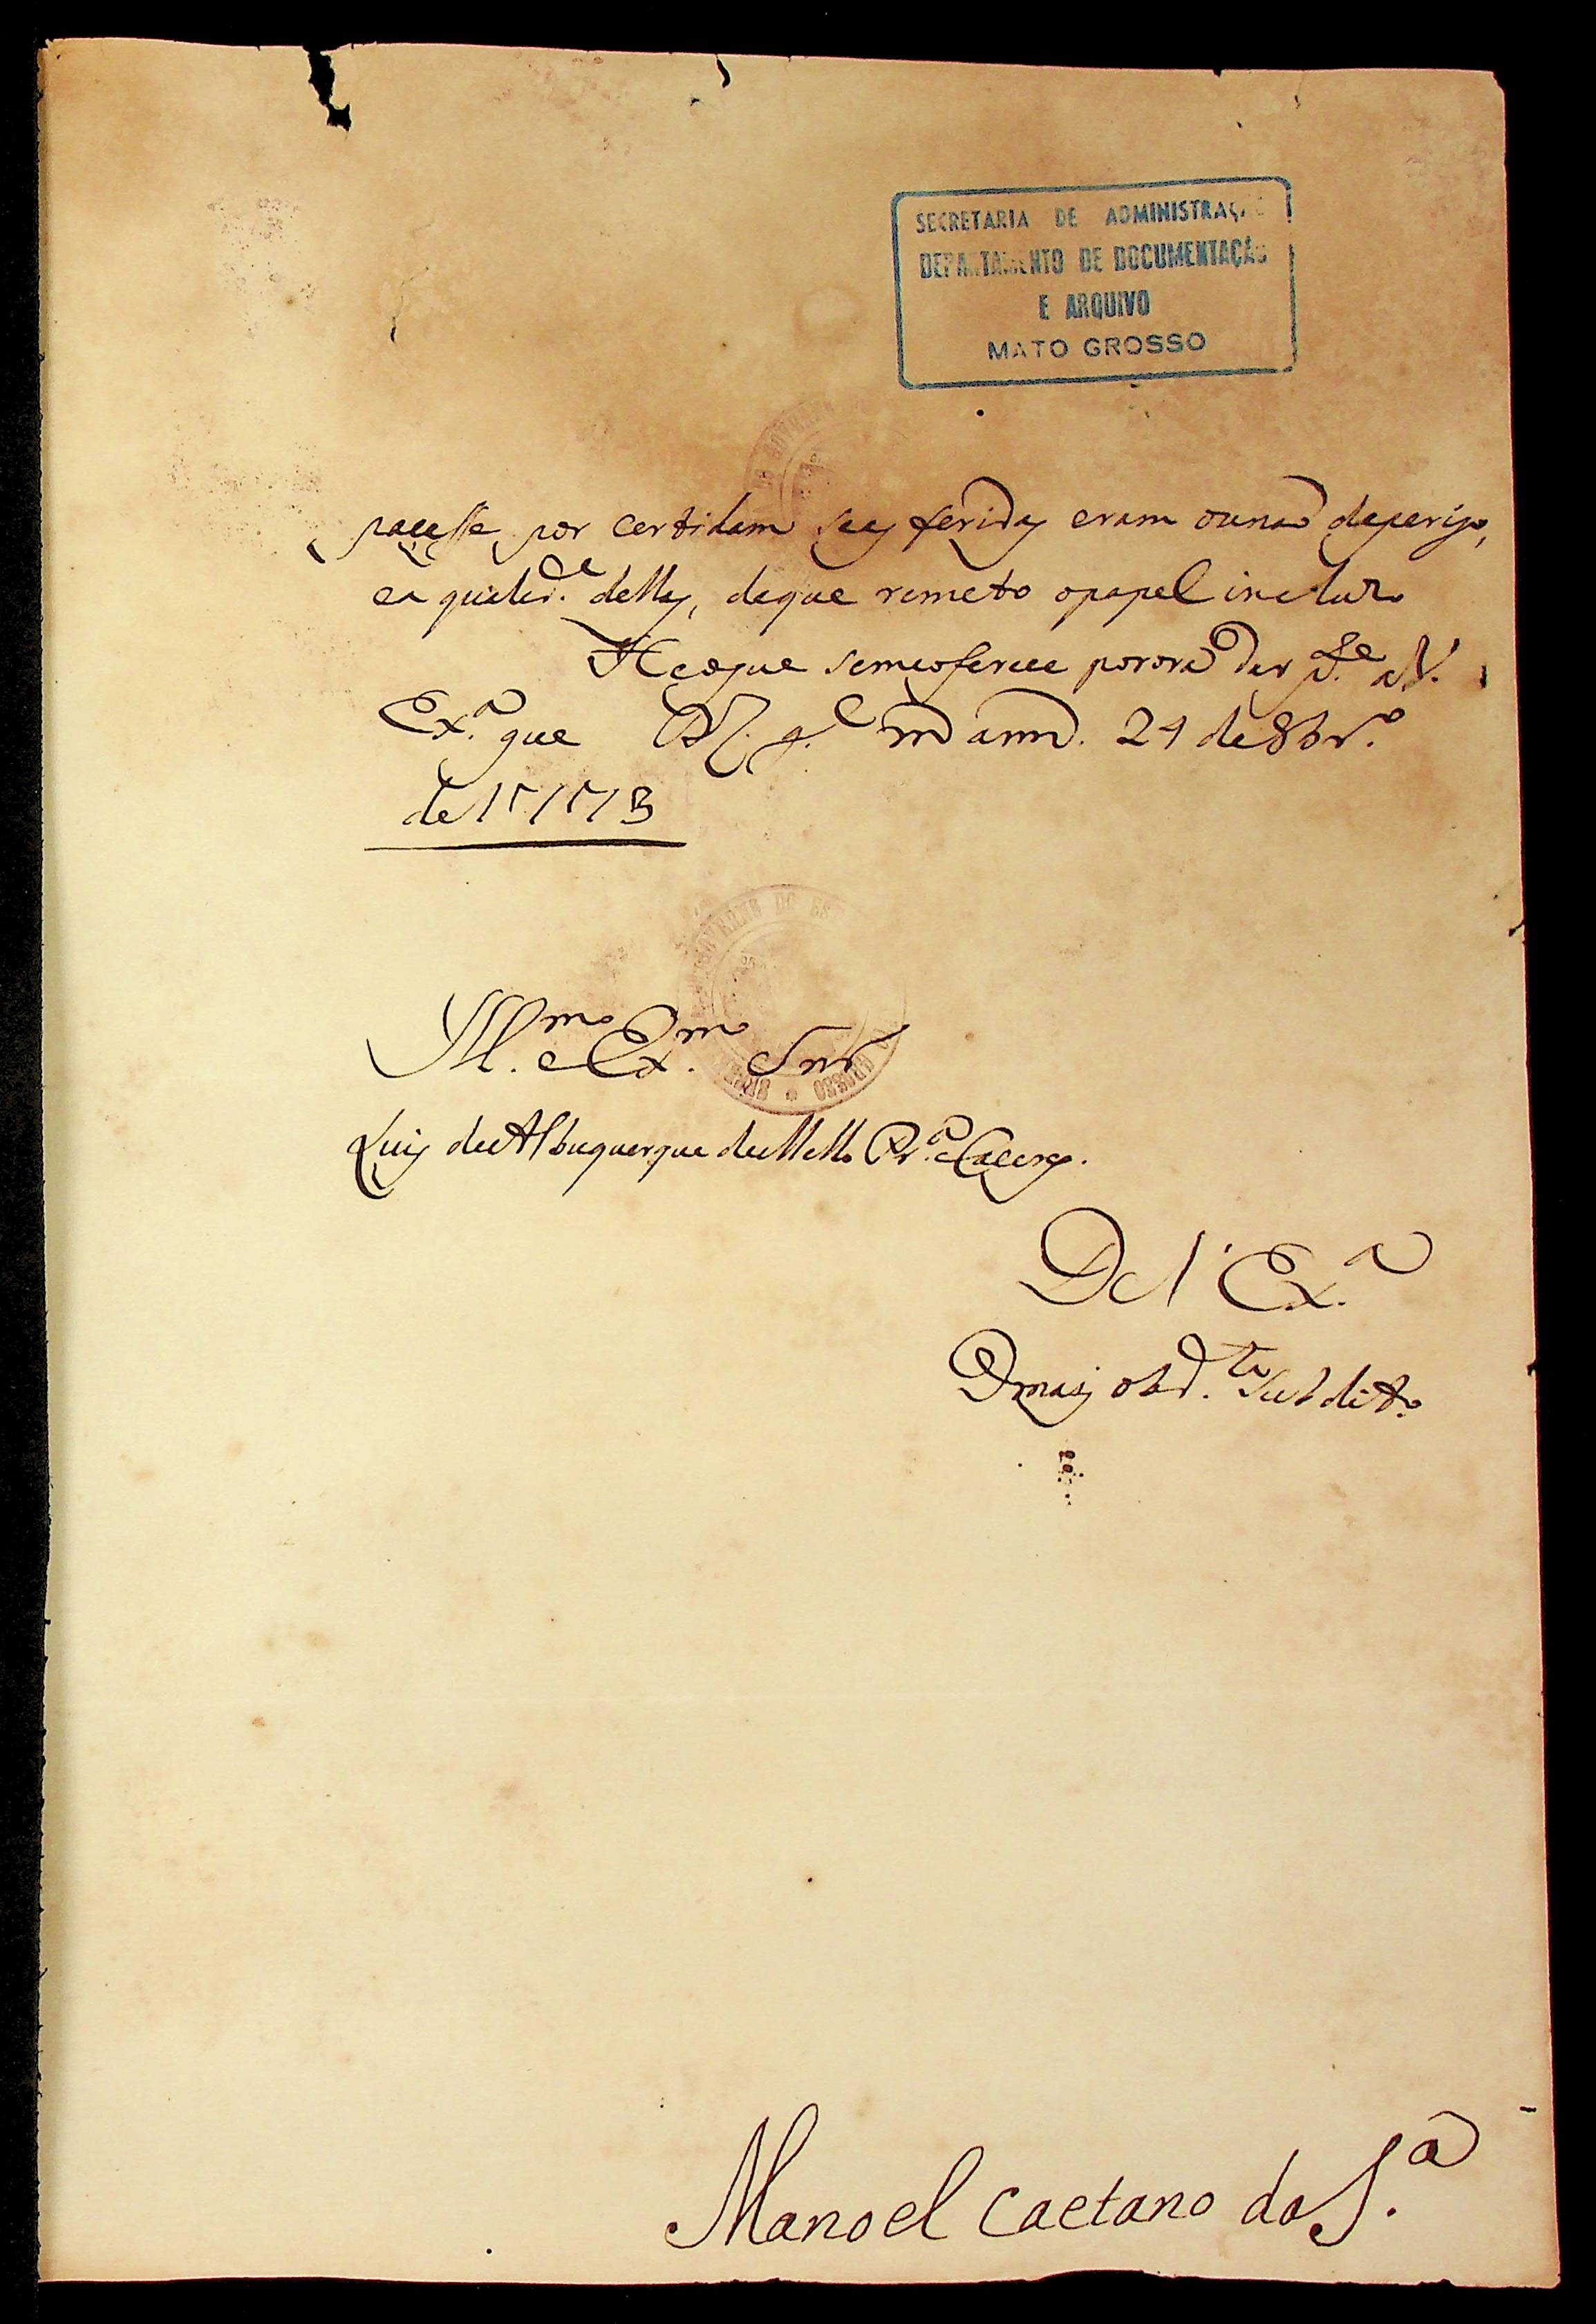 SECRETARIA DE ADMINISTRAÇÃO
DEPARTAMENTO DE DOCUMENTAÇÃO
E ARQUIVO
MATO GROSSO
por certidam se as feridas eram ou naõ de perigo,
e a qualid.e dellas, de que remeto o papel incluzo
He o que se me oferece por ora dar p.te a V.
Ex.a que D.s g.e m.s ann.s 24 de 8br.o
de 1773
Ill.mo e Ex.mo Snr
Luis de Albuquerque de Mello Pr.a e Caceres.
De V. Ex.a
O mais obd.te Subdito
Manoel Caetano da S.a